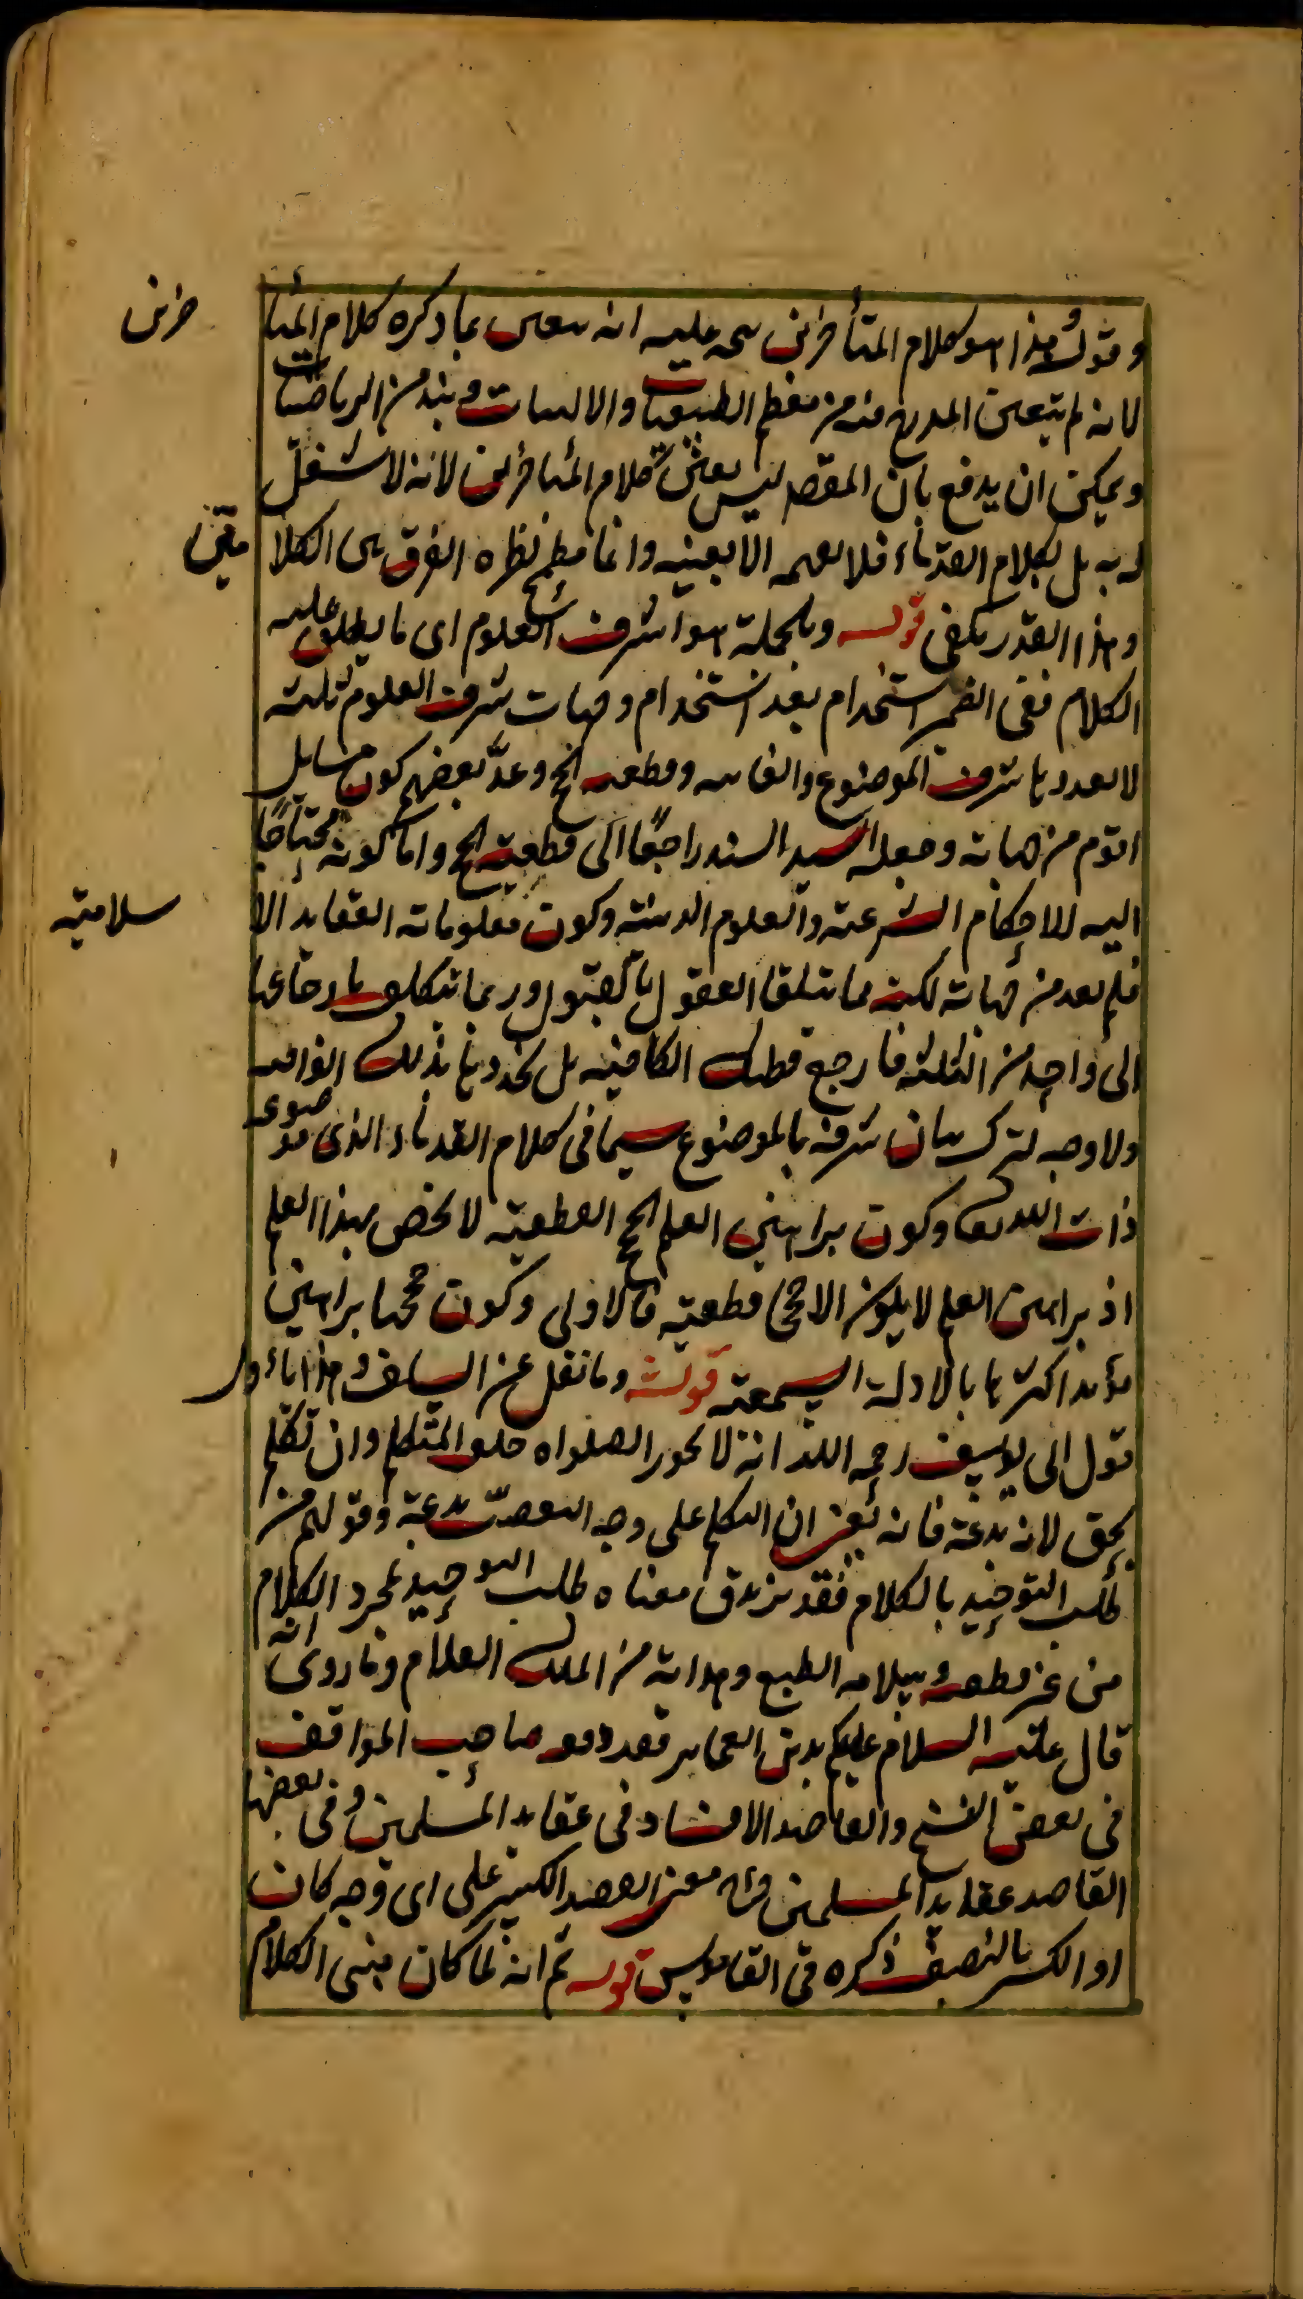 وقوله هذا هو كلام المتأخرين يتجه عليه انه تعين بما ذكره كلام المتأ
خرين
لانه لم يتعين المدرج فيه من معظم الطبيعيات والالهيات ونبذ من الرياضيات
ويمكن ان يدفع بان المقصد ليس تعيين كلام المتأخرين لانه لا شغل
له به بل بكلام القدماء فلا يهمه الا تعيينه وانما مطمح نظره الفرق بين الكلا
مين
وهذا القدر يكفى قوله وبالجملة هو اشرف العلوم اى ما يطلق عليه
الكلام ففى الضمير استخدام بعد استخدام وجهات شرف العلوم ثلثة
لا تعدد بها شرف الموضوع والغاية وقطعية الحجج وعد بعضهم كون مسايل
اقوم من جهاته وجعله السيد السند راجعا الى قطعية الحجج واما كونه محتاجا
اليه للاحكام الشرعية والعلوم الدينية وكون معلوماته العقايد الا
سلامية
فلم يعد من جهاته لكنه مما يتلقا العقول بالقبول وربما يتكلف بارجاعها
الى واحد من الثلثة فارجع فطنك الكافية بل تجد وبها تذلك الوافية
ولا وجه لترك بيان شرفه بالموضوع سيما فى كلام القدماء الذى موضوعه
ذات الله تعا وكون براهين العلم الحجج القطعية لا يخص بهذا العلم
اذ براهين العلم لا يكون الا حججا قطعية فالاولى وكون حججها براهين
مؤيدا اكثرها بالادلة السمعية قوله وما نقل عن السلف وهذا ما أول
قول ابى يوسف رحمه الله انه لا يجوز الصلواة خلف المتكلم وان تكلم
بحق لانه بدعة فانه يعنى ان التكلم على وجه التعصب بدعة وقولهم من
طلب التوحيد بالكلام فقد تزندق معناه طلب التوحيد بمجرد الكلام
من غير قطعية وسلامة الطبع وهداية من الملك العلام وما روى انه
قال عليه السلام عليكم بدين العجايز فقد دفعه صاحب المواقف
فى بعض النسخ والقاصد الافساد فى عقايد المسلمين وفى بعضها
القاصد عقايد المسلمين وفيه معنى القصد الكسر على اى وجه كان
او الكسر بالنصف ذكره فى القاموس قوله ثم انه لما كان مبنى الكلام